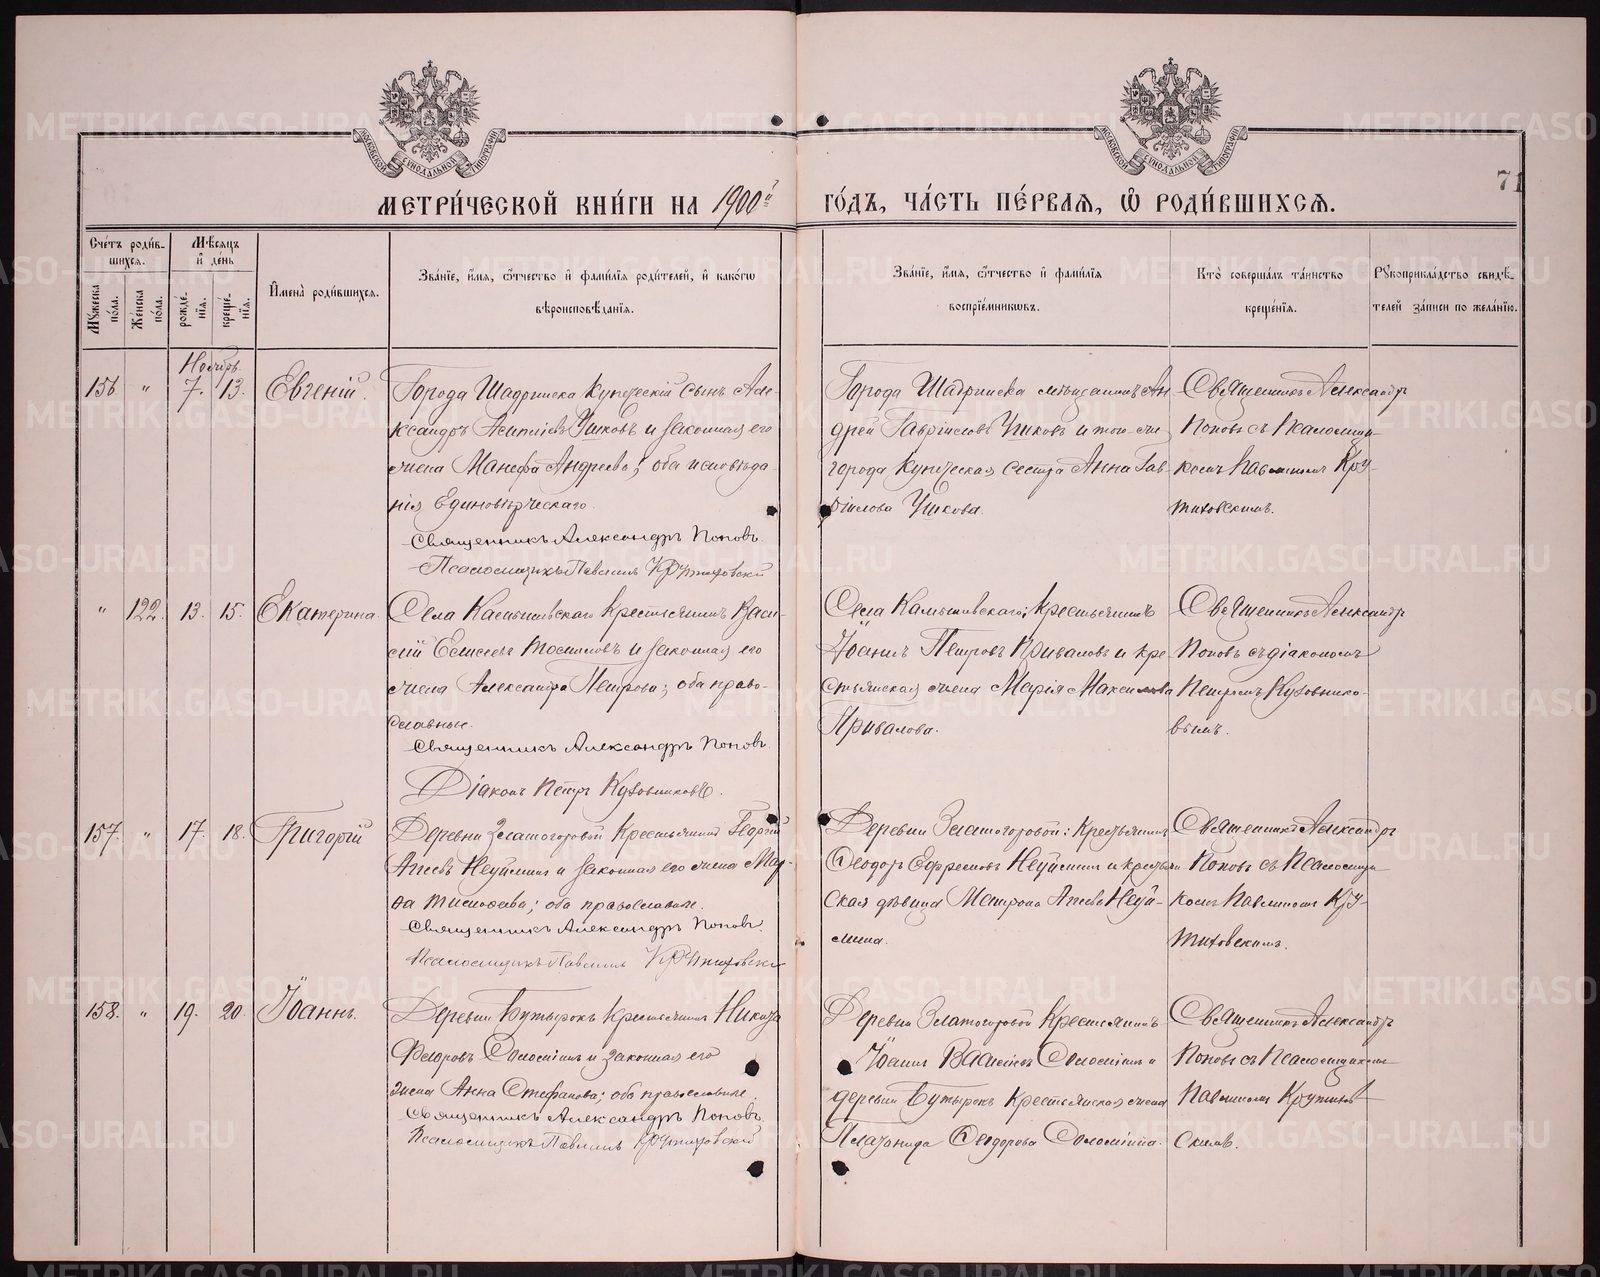 МОСКОВСКОЙ СѴНОДАЛЬНОЙ ТИПОГРАФІИ
МОСКОВСКОЙ СѴНОДАЛЬНОЙ ТИПОГРАФІИ
71
МЕТРИ́ЧЕСКОЙ КНИ́ГИ НА 1900й
ГО́ДЪ, ЧА́СТЬ ПЕ́РВАЯ, Ѡ РОДИ́ВШИХСЯ.
Сче́тъ роди́в-
шихся.
Мꙋ́жеска
по́ла.
Же́нска
по́ла.
Мѣ́сяцъ
и҆ де́нь
рожде́-
нїѧ.
креще́-
нїѧ.
И҆мена̀ роди́вшихся.
Зва́нїе, и҆́мя, ѻ҆́тчество и҆ фами́лїя роди́телей, и҆ како́гѡ
вѣроисповѣ́данїя.
Зва́нїе, и҆́мя, ѻ҆́тчество и҆ фами́лїя
воспрїе́мникѡвъ.
Кто̀ соверша́лъ та́инство
креще́нїя.
Рꙋкоприкла́дство свидѣ́-
телей за́писи по жела́нїю.
Ноябрь
156 " 7. 13. Евгеній.
Города Шадринска Купеческій сынъ Але-
ксандръ Ушковъ и законная его
жена Манефа Андреева; оба исповѣда-
нія Единовѣрческаго.
Священникъ Александръ Поповъ.
Псаломщикъ Павлинъ Крутиховскій
Города Шадринска мѣщанинъ Ан
дрей Гавріиловъ Ушковъ и того-же
города Купеческая сестра Анна Гав-
ріилова Ушкова.
Священникъ Александръ
Поповъ съ Псаломщи-
комъ Павлиномъ Кру-
тиховскимъ.
" 122. 13. 15. Екатерина.
Села Камышевскаго Крестьянинъ Васи-
лій Елисеевъ и законная его
жена Александра Петрова; оба право-
славные.
Священникъ Александръ Поповъ.
Діаконъ Петръ Кузовниковъ.
Села Камышевскаго; Крестьянинъ
Іоаннъ Петровъ Приваловъ и кре
стьянская жена Марія Максимова
Привалова.
Священникъ Александръ
Поповъ съ діакономъ
Петромъ Кузовнико-
вымъ.
157. " 17. 18. Григорій
Деревни Златогоровой Крестьянинъ Георгій
Агѣевъ Неуйминъ и законная его жена Мар-
ѳа Тимоѳеева; оба православные.
Священникъ Александръ Поповъ.
Псаломщикъ Павлинъ Крутиховскій
Деревни Златогоровой: крестьянинъ
Ѳеодоръ Ефремовъ Неуйминъ и крестьян
ская дѣвица Матрона Агѣева Неуй-
мина.
Священникъ Александръ
Поповъ съ Псаломщи-
комъ Павлиномъ Кру-
тиховскимъ.
158. " 19. 20. Іоаннъ.
Деревни Бутырокъ Крестьянинъ Никита
Федоровъ Соломеинъ и законная его
жена Анна Стефанова; оба православные.
Священникъ Александръ Поповъ.
Псаломщикъ Павлинъ Крутиховскій
Деревни Златогоровой Крестьянинъ
Іоаннъ Соломеинъ и
деревни Бутырокъ Крестьянская жена
Ѳеодорова Соломеина.
Священникъ Александръ
Поповъ съ Псаломщикомъ
Павлиномъ Крутихов
скимъ.
METRIKI.GASO-URAL.RU